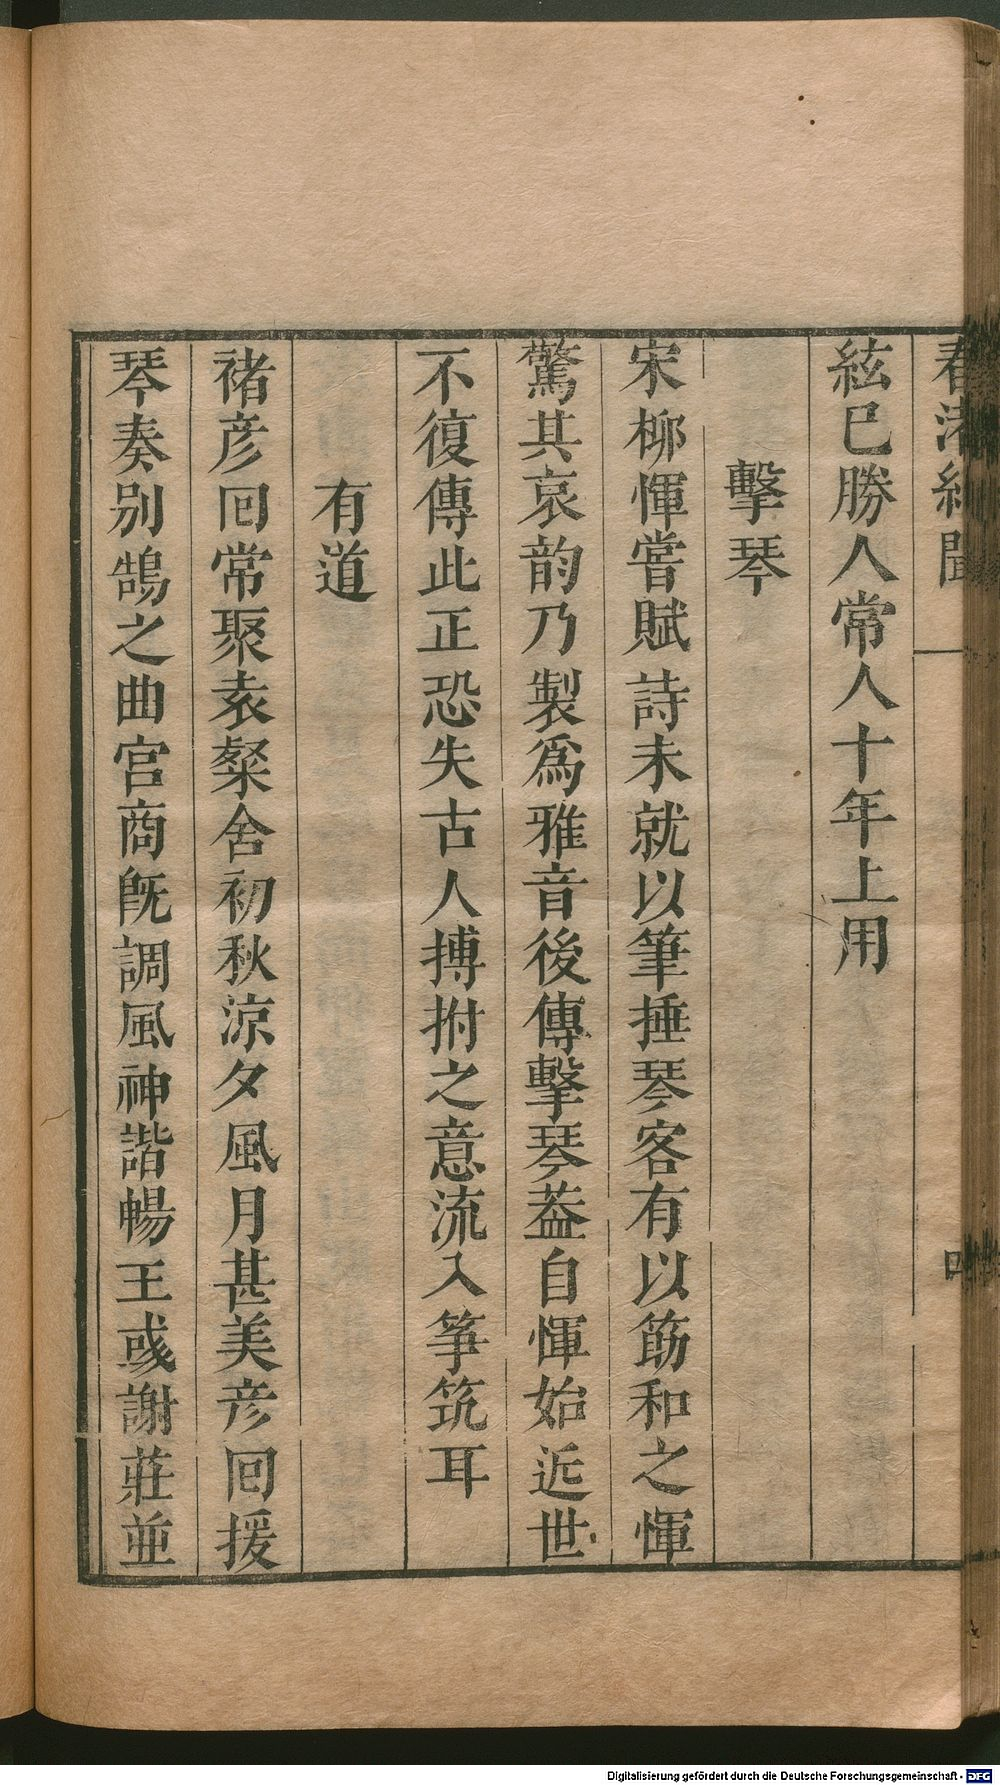 春渚紀聞
四
絃已勝人常人十年上用
擊琴
宋栁惲嘗賦詩未就以筆捶琴客有以筯和之惲
驚其哀韵乃製爲雅音後傳擊琴葢自惲始近世
不復傳此正恐失古人搏拊之意流入筝筑耳
有道
褚彦回常聚袁粲舍初秋涼夕風月甚美彦回援
琴奏別鵠之曲宫商旣調風神諧暢王彧謝莊並
Digitalisierung gefördert durch die Deutsche Forschungsgemeinschaft - DFG